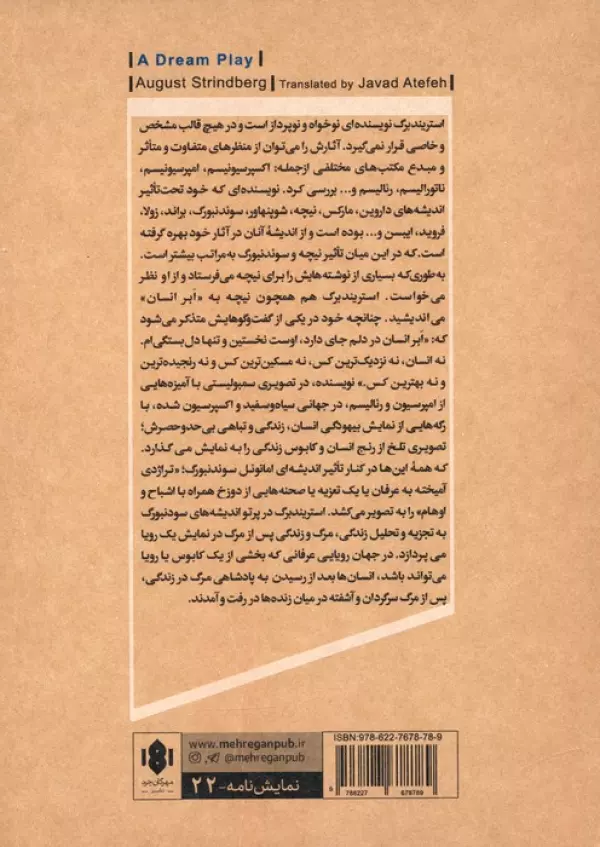 A Dream Play
August Strindberg | Translated by Javad Atefeh
استریندبرگ نویسنده‌ای نوخواه و نوپرداز است و در هیچ قالب مشخص
و خاصی قرار نمی‌گیرد. آثارش را می‌توان از منظرهای متفاوت و متأثر
و مبدع مکتب‌های مختلفی ازجمله: اکسپرسیونیسم، امپرسیونیسم،
ناتورالیسم، رئالیسم و... بررسی کرد. نویسنده‌ای که خود تحت‌تأثیر
اندیشه‌های داروین، مارکس، نیچه، شوپنهاور، سوئدنبورگ، براند، زولا،
فروید، ایبسن و... بوده است و از اندیشهٔ آنان در آثار خود بهره گرفته
است. که در این میان تأثیر نیچه و سوئدنبورگ به‌مراتب بیشتر است.
به‌طوری‌که بسیاری از نوشته‌هایش را برای نیچه می‌فرستاد و از او نظر
می‌خواست. استریندبرگ هم همچون نیچه به «اَبَر انسان»
می‌اندیشید. چنانچه خود در یکی از گفت‌وگوهایش متذکر می‌شود
که: «اَبَر انسان در دلم جای دارد، اوست نخستین و تنها دل‌بستگی‌ام.
نه انسان، نه نزدیک‌ترین کس، نه مسکین‌ترین کس و نه رنجیده‌ترین
و نه بهترین کس.» نویسنده، در تصویری سمبولیستی با آمیزه‌هایی
از امپرسیون و رئالیسم، در جهانی سیاه‌وسفید و اکسپرسیون شده، با
رگه‌هایی از نمایش بیهودگی انسان، زندگی و تباهی بی‌حدوحصرش؛
تصویری تلخ از رنج انسان و کابوس زندگی را به نمایش می گذارد.
که همهٔ این‌ها در کنار تأثیر اندیشه‌ای امانوئل سوئدنبورگ؛ «تراژدی
آمیخته به عرفان یا یک تعزیه یا صحنه‌هایی از دوزخ همراه با اشباح و
اوهام» را به تصویر می‌کشد. استریندبرگ در پرتو اندیشه‌های سودنبورگ
به تجزیه و تحلیل زندگی، مرگ و زندگی پس از مرگ در نمایش یک رویا
می پردازد. در جهان رویایی عرفانی که بخشی از یک کابوس یا رویا
می‌تواند باشد، انسان‌ها بعد از رسیدن به پادشاهی مرگ در زندگی،
پس از مرگ سرگردان و آشفته در میان زنده‌ها در رفت و آمدند.
مهرگان خرد
www.mehreganpub.ir
@mehreganpub
نمایش‌نامه-۲۲
ISBN:978-622-7678-78-9
9 786227 678789